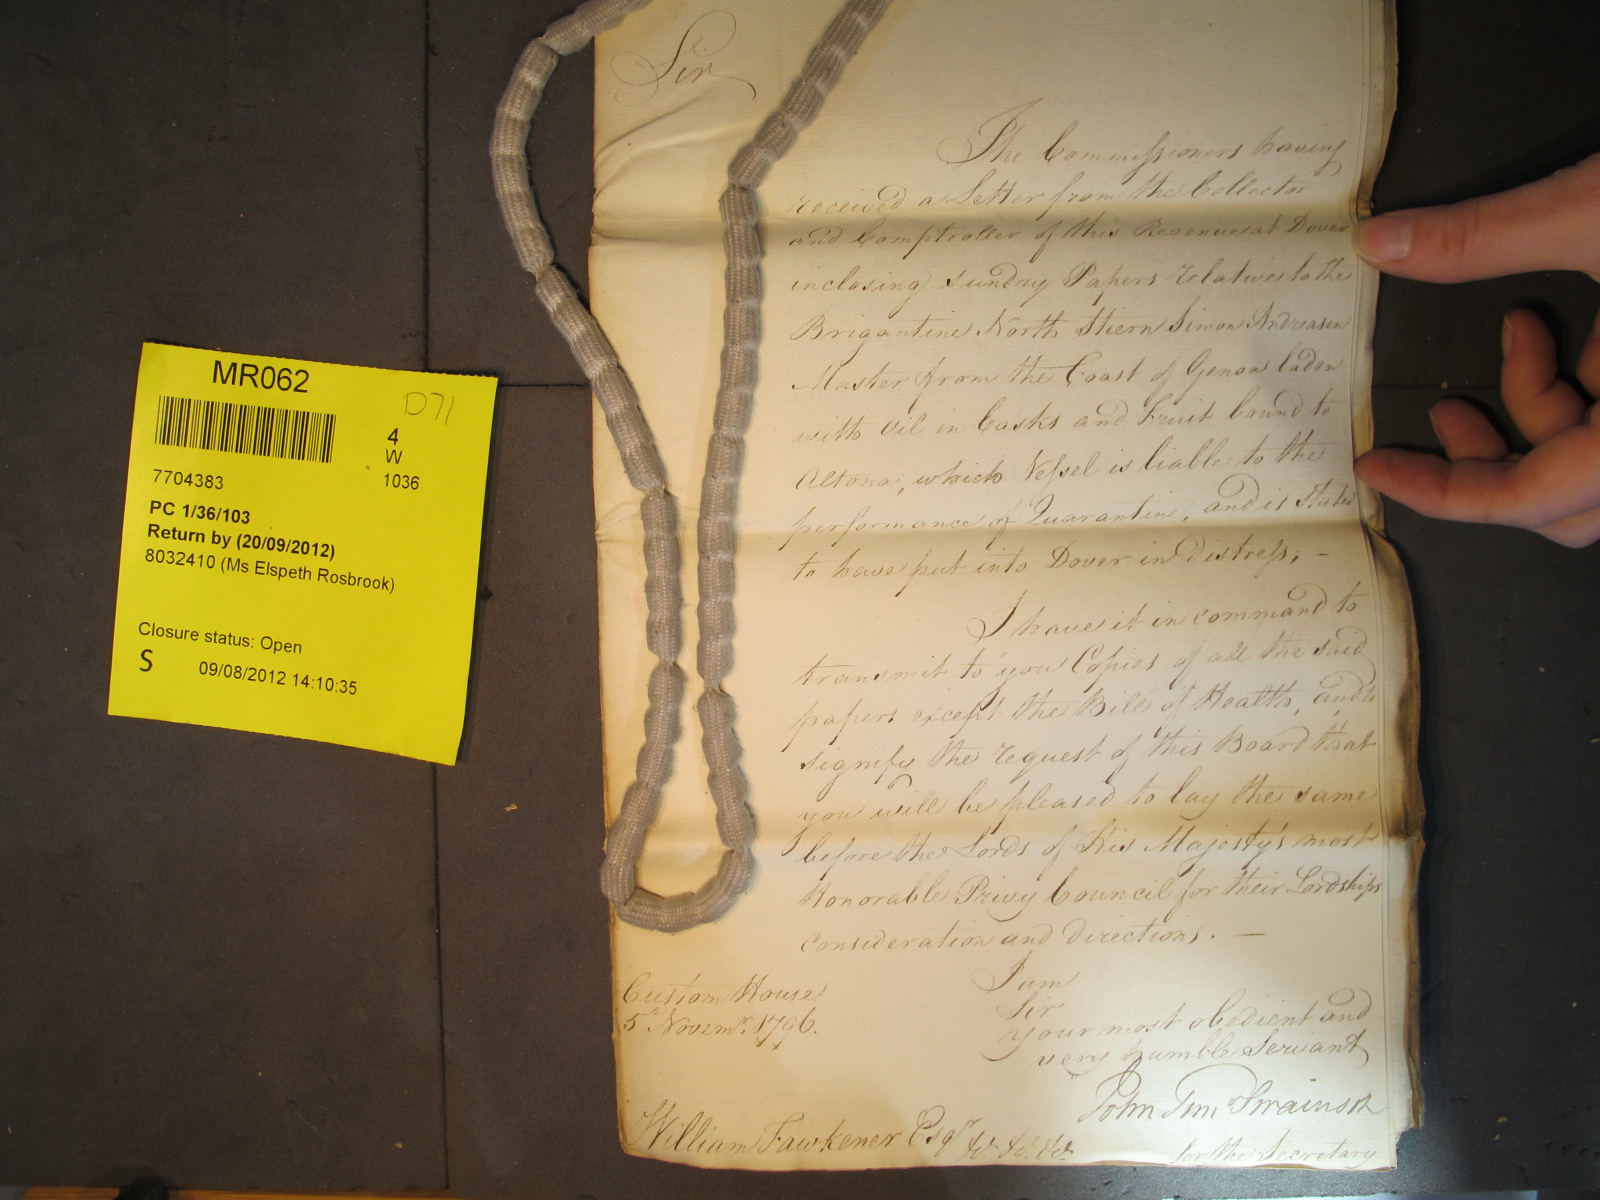 MR062
D71
4
W
1036
7704383
PC 1/36/103
Return by (20/09/2012)
8032410 (Ms Elspeth Rosbrook)
Closure status: Open
S 09/08/2012 14:10:35
Sir
The Commissioners having
received a Letter from the Collector
and Comptroller of this Revenue at Dover
inclosing sundry Papers relative to the
Brigantine North Stiern Simon Andreasen
Master from the Coast of Genoa laden
with Oil in Casks and Fruit bound to
Altona, which Vessel is liable to the
performance of Quarantine, and is stated
to have put into Dover in distress; -
I have it in command to
transmit to you Copies of all the said
papers except the Bill of Health, and to
signify the request of this Board that
you will be pleased to lay the same
before the Lords of His Majesty's most
Honorable Privy Council for their Lordships
consideration and directions. —
I am
Sir
your most obedient and
very humble Servant
Custom House
5th Novemr. 1796.
John Swainson
for the Secretary
William Fawkener Esqr. &c. &c. &c.